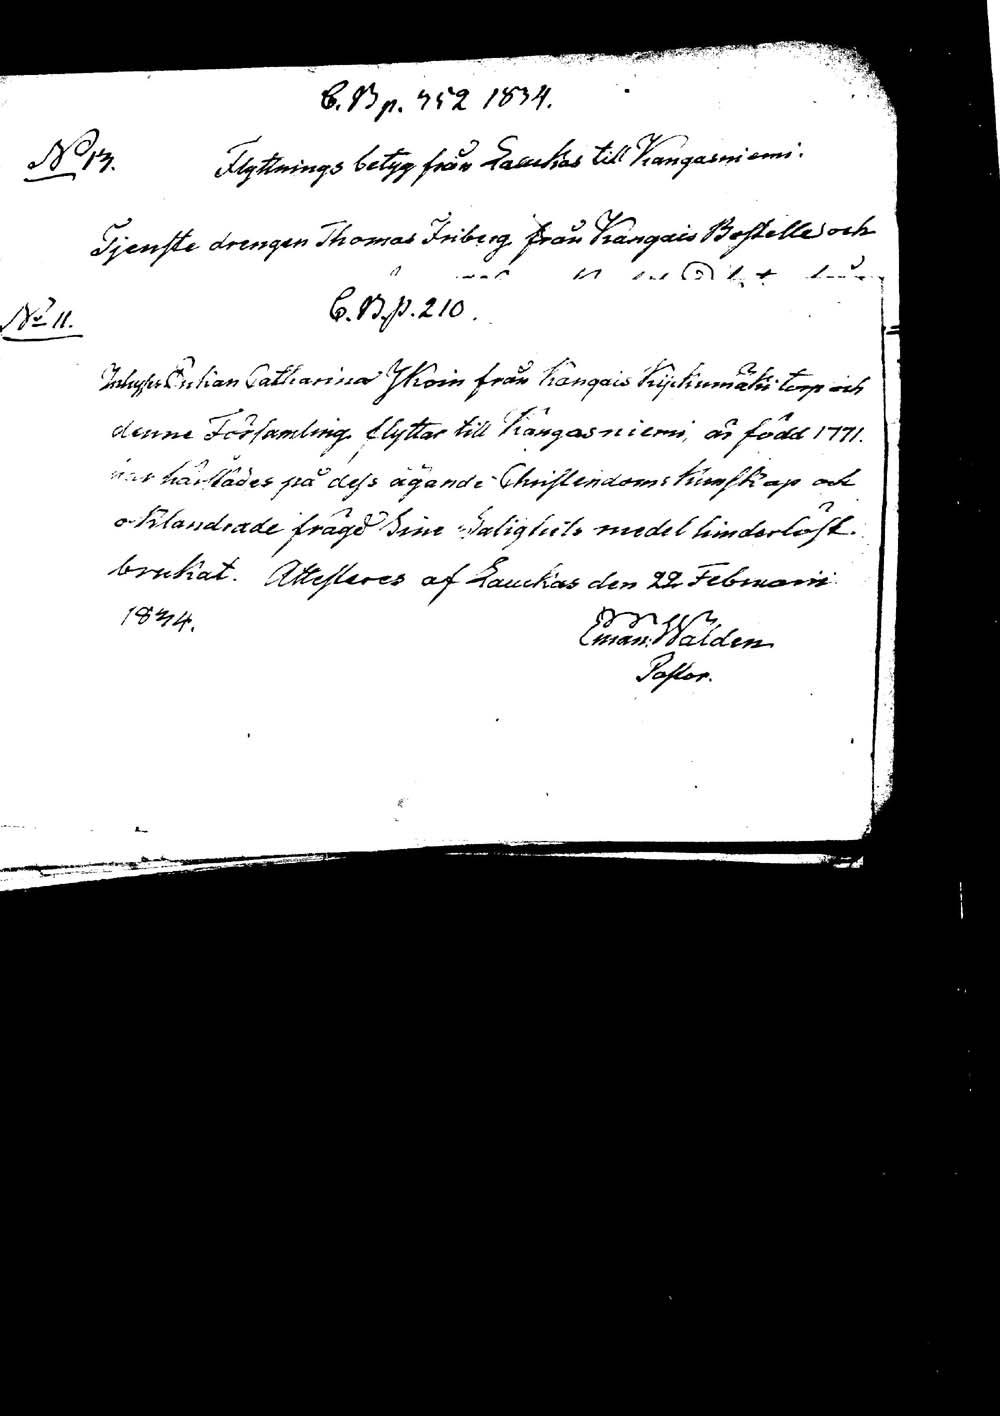 C.B p. 352 1834.
No 13.
Flyttnings betyg från Laukas till Kangasniemi.
Tjenste drengen Thomas Friberg från Kangais Bostelle och
No 11.
C.B.p. 210.
Inhyses Enkan Catharina Ikoin från Kangais torp och
denne Församling flyttar till Kangasniemi, är född 1771.
har härstädes på dess ägande Christendoms Kunskap och
oklandrade frägd Sine Salighets medel hinderlöst
brukat. Attesteres af Laukas den 22 Februarii
1834.
Eman: Walden
Pastor.